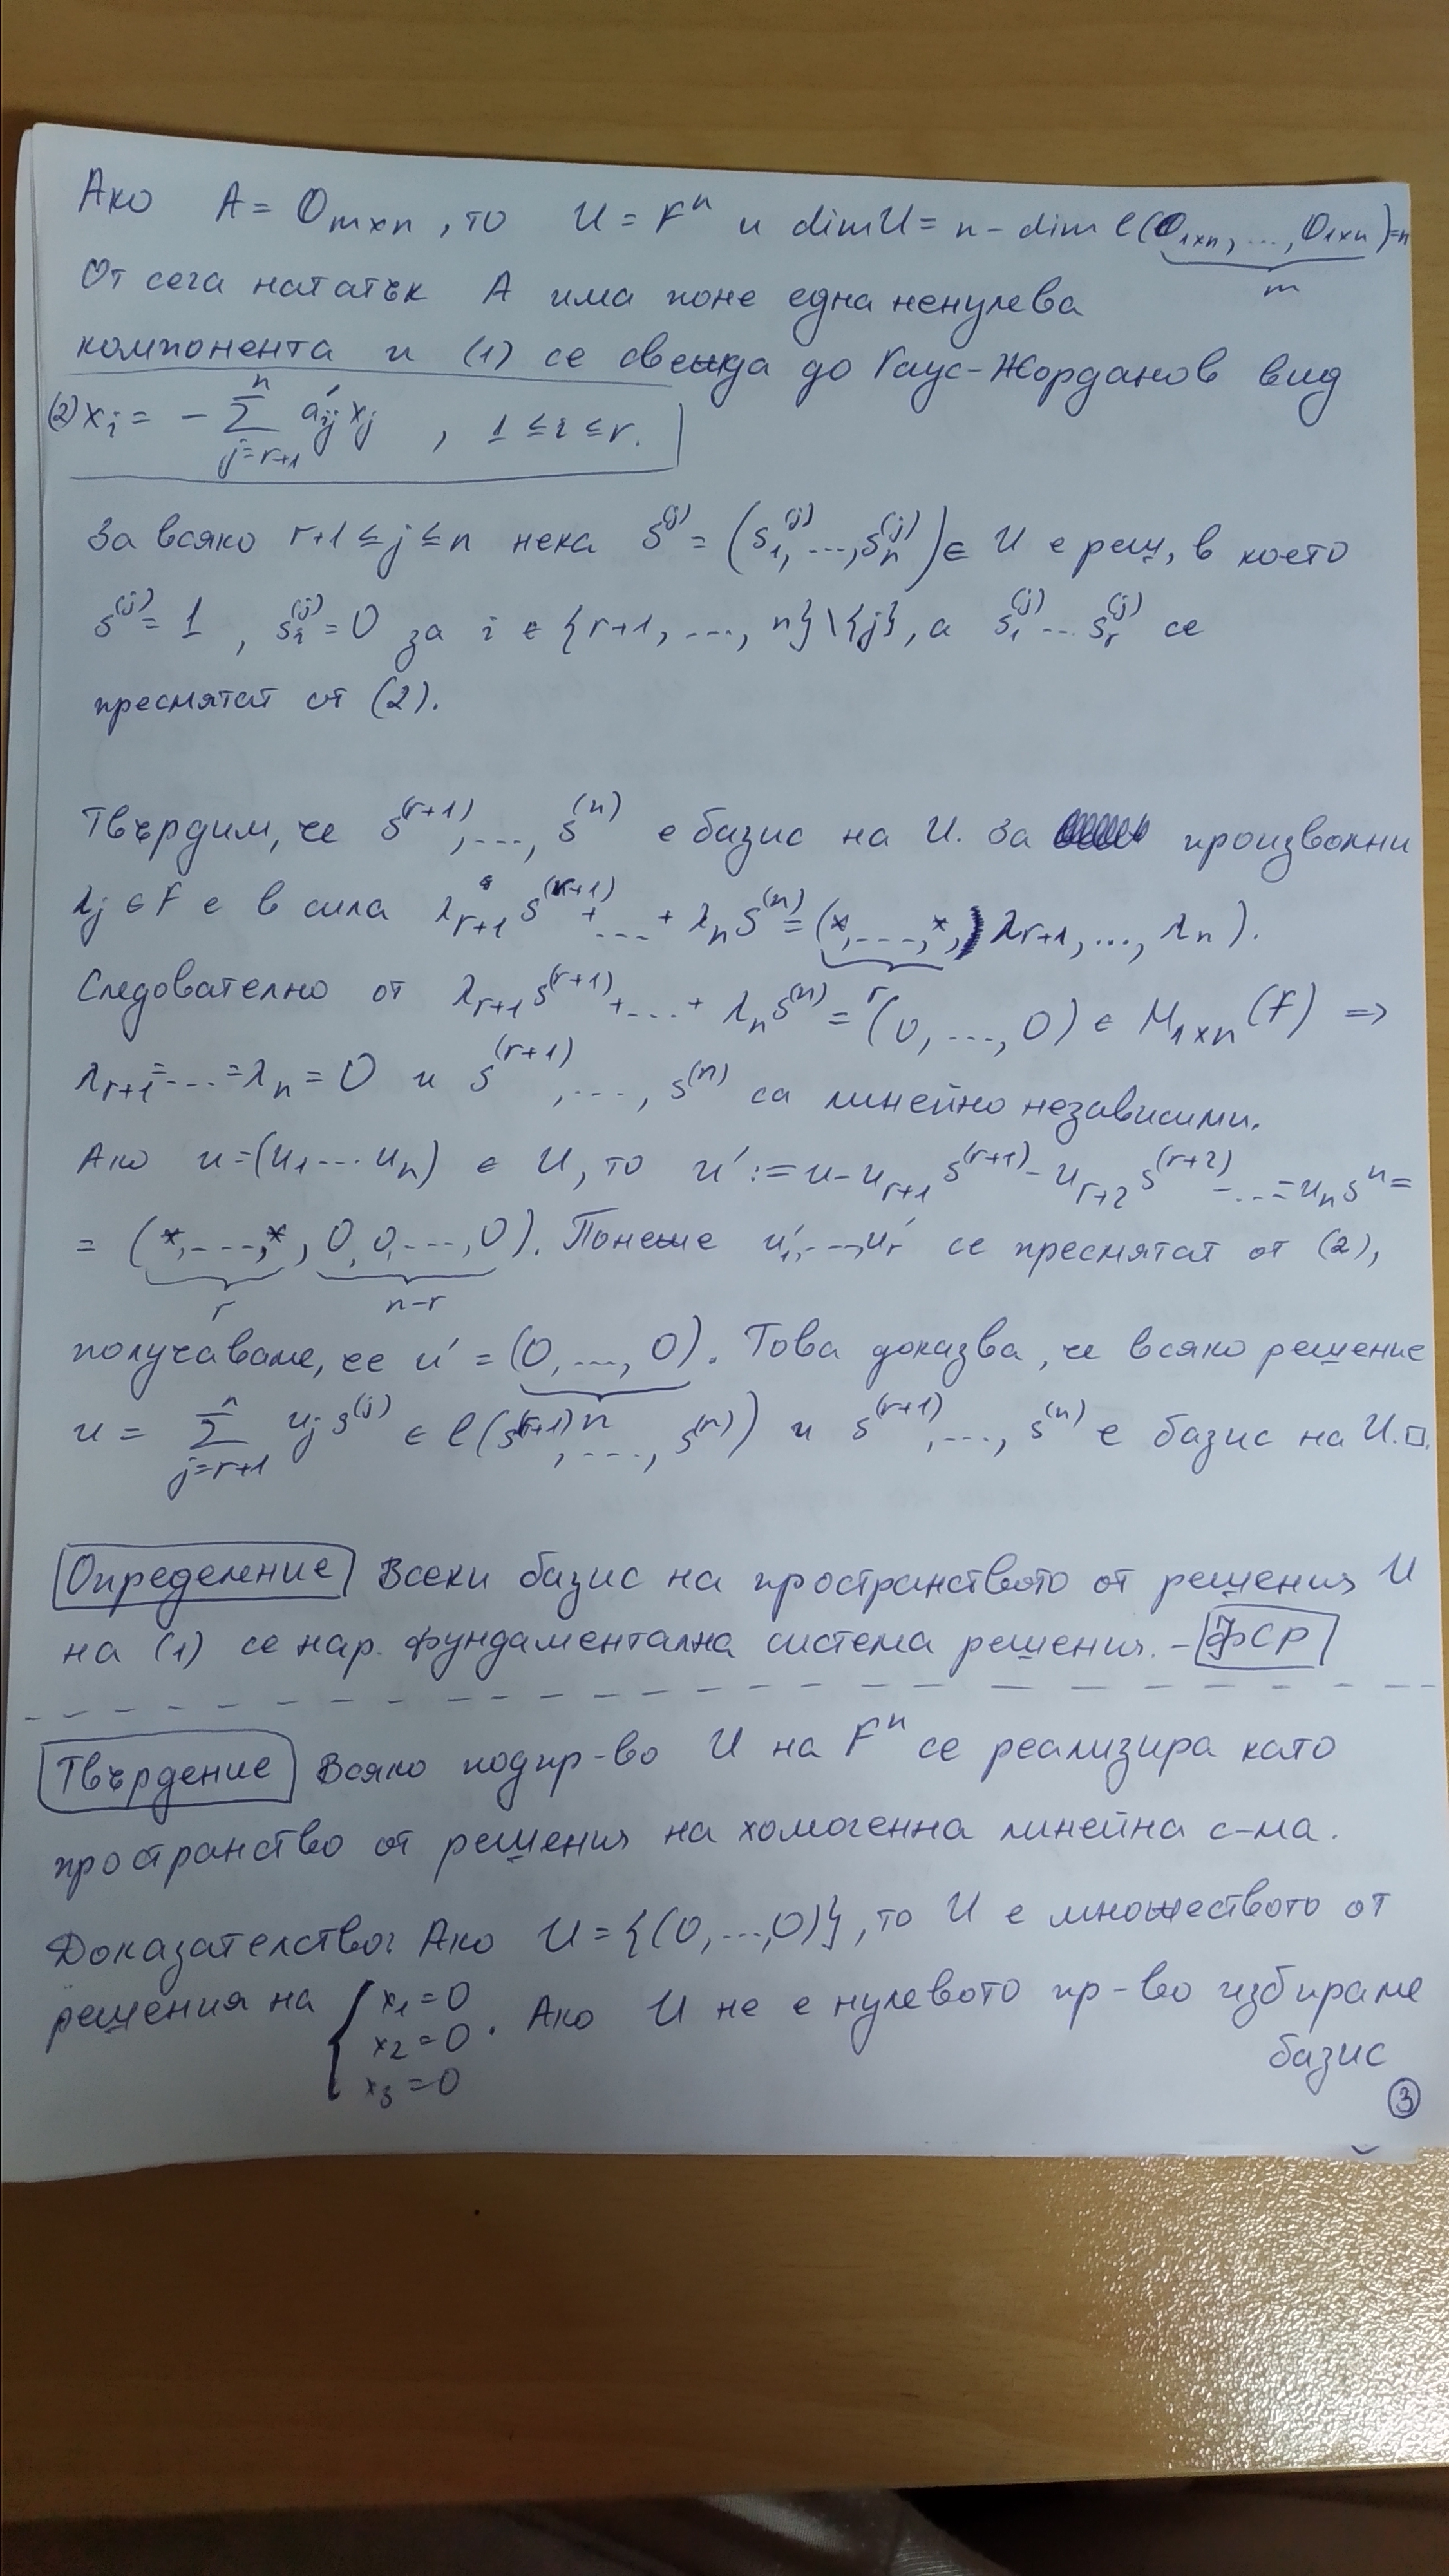 Ако A = O_{m×n}, то U = F^n и dim U = n - dim ℓ(O_{1×n}, ..., O_{1×n}) = n
m
От сега нататък A има поне една ненулева
компонента и (1) се свежда до Гаус-Жорданов вид
(2) x_i = - ∑_{j=r+1}^{n} a'_{ij} x_j , 1 ≤ i ≤ r.
За всяко r+1 ≤ j ≤ n нека s^{(j)} = (s_1^{(j)}, ..., s_n^{(j)}) ∈ U е реш, в което
s^{(j)} = 1 , s_i^{(j)} = 0 за i ∈ {r+1, ..., n}\{j}, а s_1^{(j)} ... s_r^{(j)} се
пресмятат от (2).
Твърдим, че s^{(r+1)}, ..., s^{(n)} е базис на U. За произволни
λ_j ∈ F е в сила λ_{r+1} s^{(r+1)} + ... + λ_n s^{(n)} = (*, ..., *, λ_{r+1}, ..., λ_n).
r
Следователно от λ_{r+1} s^{(r+1)} + ... + λ_n s^{(n)} = (0, ..., 0) ∈ M_{1×n}(F) ⇒
λ_{r+1} = ... = λ_n = 0 и s^{(r+1)}, ..., s^{(n)} са линейно независими.
Ако u = (u_1 ... u_n) ∈ U, то u' := u - u_{r+1} s^{(r+1)} - u_{r+2} s^{(r+2)} - ... - u_n s^n =
= (*, ..., *, 0, 0, ..., 0). Понеже u'_1, ..., u'_r се пресмятат от (2),
r n-r
получаваме, че u' = (0, ..., 0). Това доказва, че всяко решение
n
u = ∑_{j=r+1}^{n} u_j s^{(j)} ∈ ℓ(s^{(r+1)}, ..., s^{(n)}) и s^{(r+1)}, ..., s^{(n)} е базис на U. □.
Определение Всеки базис на пространството от решения U
на (1) се нар. фундаментална система решения. - ФСР
Твърдение Всяко подпр-во U на F^n се реализира като
пространство от решения на хомогенна линейна с-ма.
Доказателство: Ако U = {(0, ..., 0)}, то U е множеството от
решения на { x_1 = 0 x_2 = 0 x_3 = 0 . Ако U не е нулевото пр-во избираме
базис
3